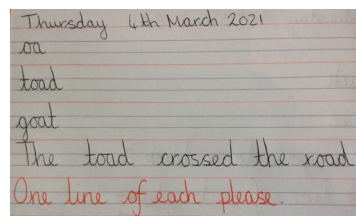 Thursday 4th March 2021
oa
toad
goat
The toad crossed the road
One line of each please.